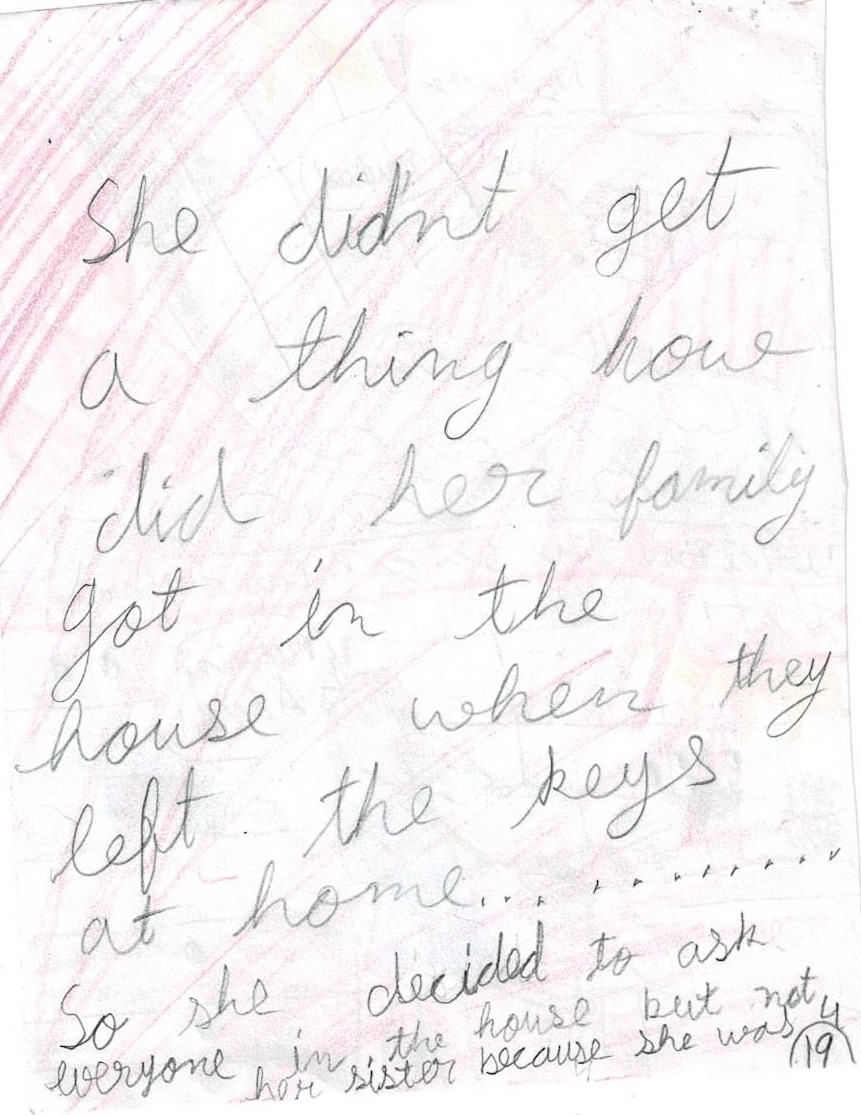 She didn't get
a thing howe
did her family
got in the
house when they
left the keys
at home............
So she decided to ask
everyone in the house but not
her sister because she was 4
19